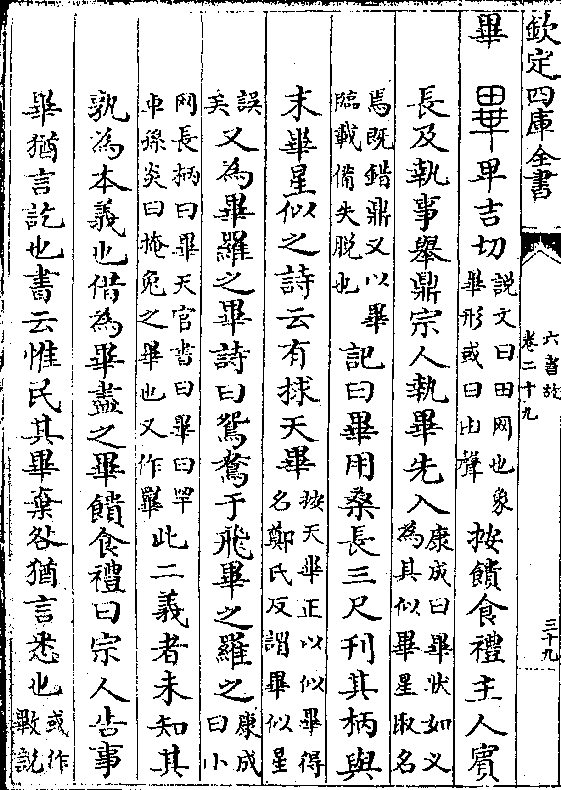 欽定四庫全書
六書故
卷二十九
三十九
畢
卑吉切
說文曰田网也象
畢形或曰甶聲
按饋食禮主人賓
長及執事舉鼎宗人執畢先入
康成曰畢狀如叉
為其似畢星取名
焉既錯鼎又以畢
臨載備失脱也
記曰畢用桑長三尺刊其柄與
末畢星似之詩云有捄天畢
按天畢正以似畢得
名鄭氏反謂畢似星
誤
矣
又為畢羅之畢詩曰鴛鴦于飛畢之羅之
康成
曰小
网長柄曰畢天官書曰畢曰罕
車孫炎曰掩兔之畢也又作罼
此二義者未知其
孰為本義也借為畢盡之畢饋食禮曰宗人告事
畢猶言訖也書云惟民其畢棄咎猶言悉也
或作
說